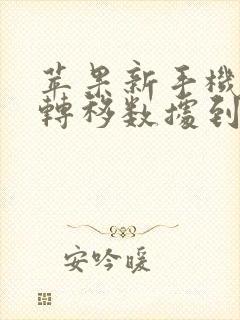 苹果新手機
轉移数據到
安吟暖